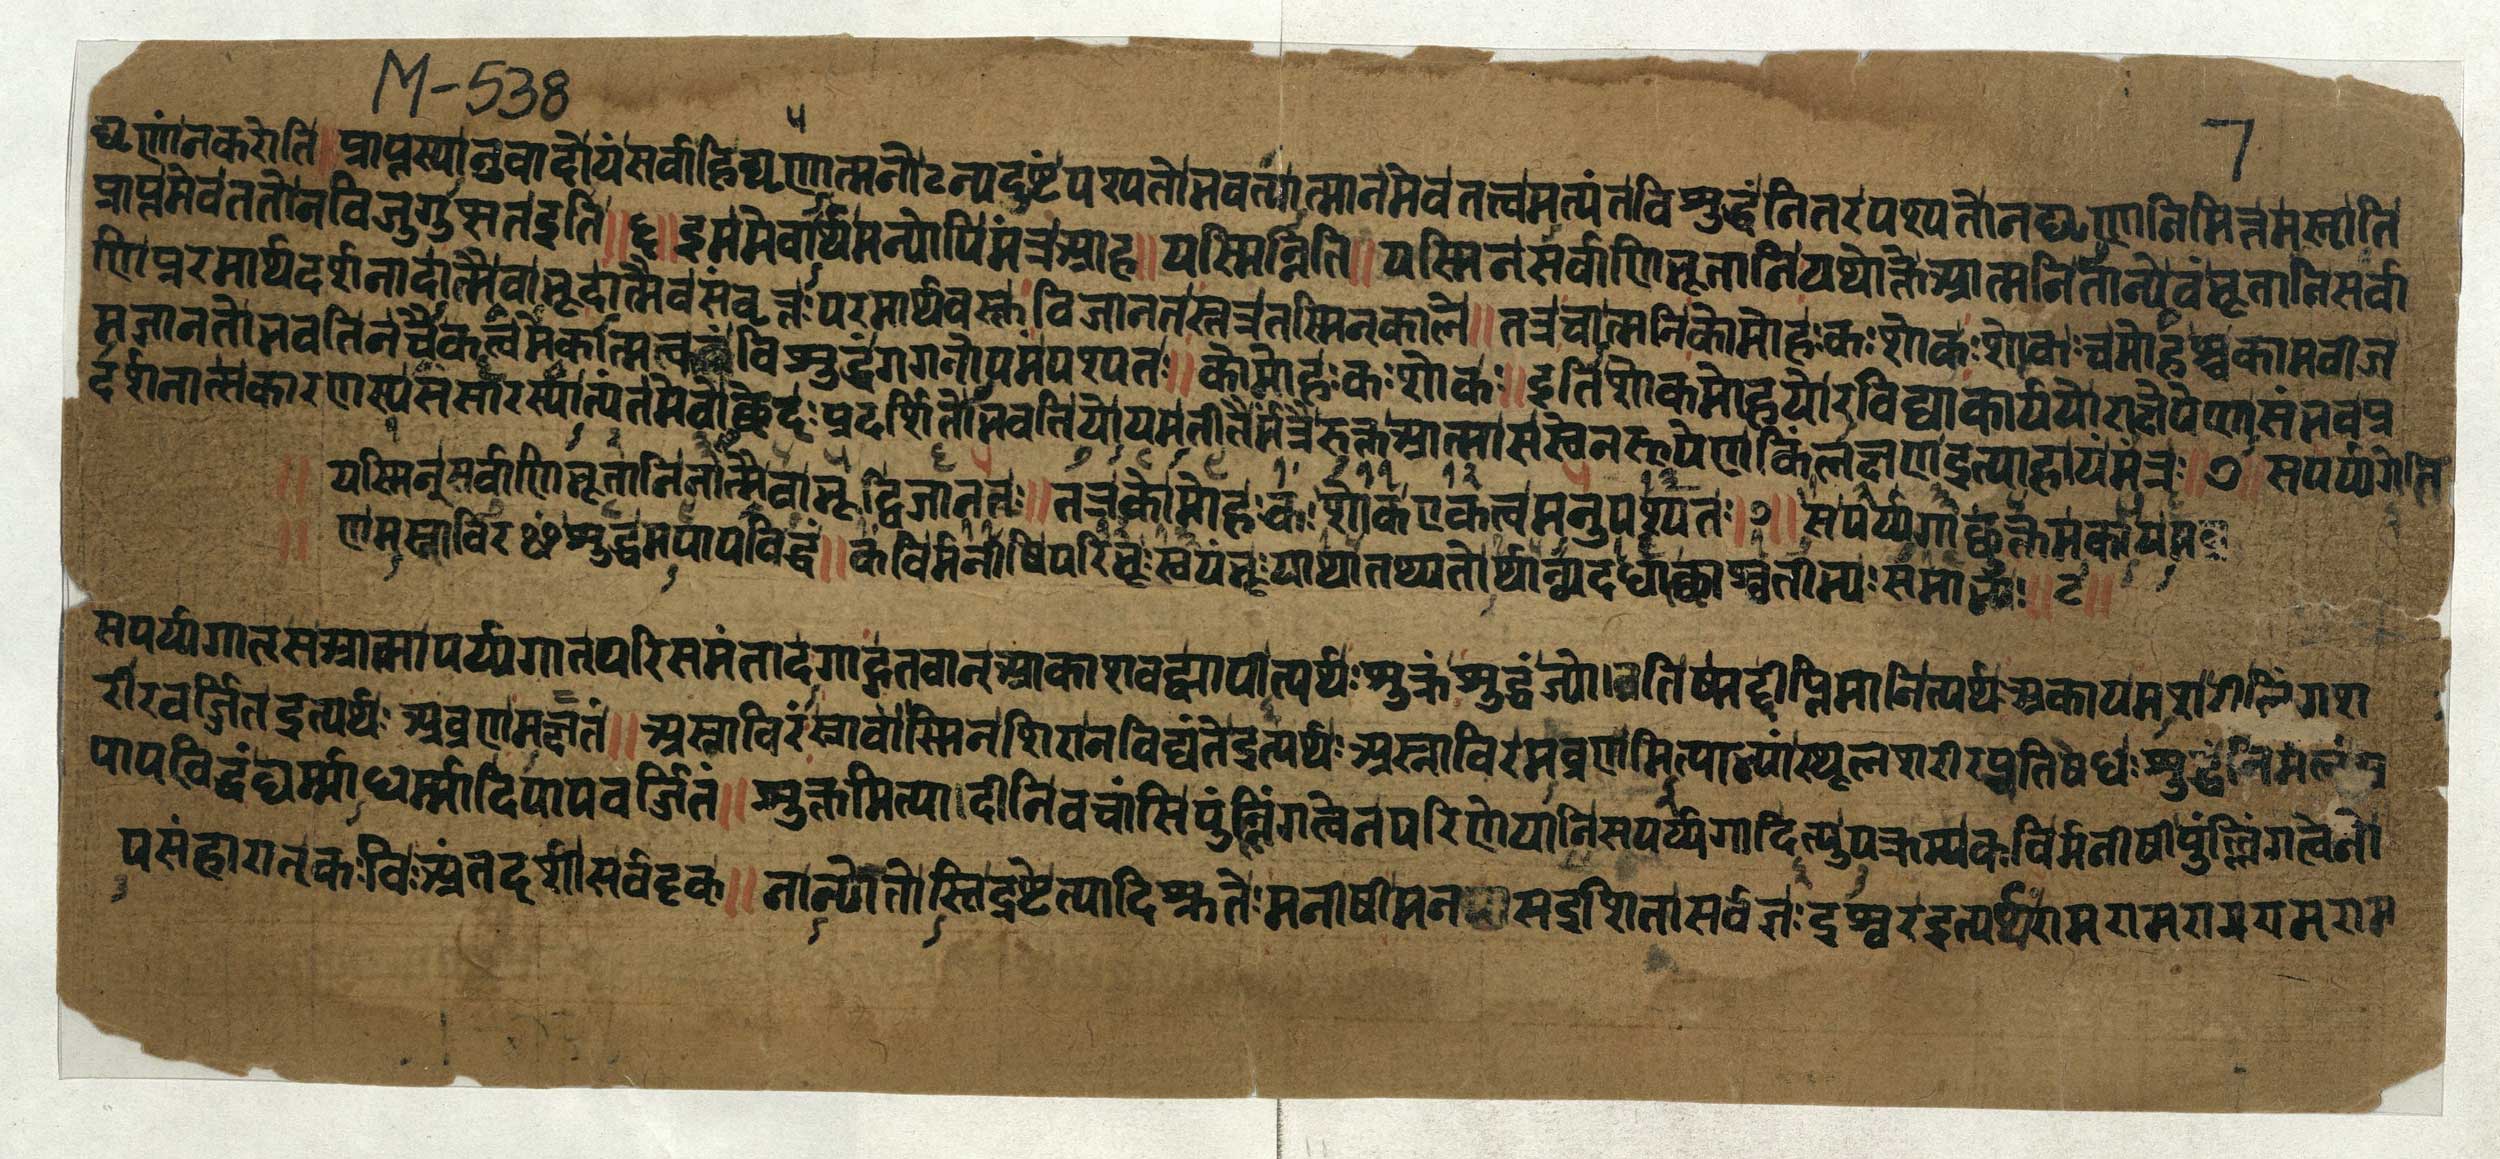 M-538
५
7
घृणांनकरोति॥प्राप्तस्यानुवादोयंसर्वाहिघृणात्मनोऽन्यदुष्टंपश्यतोभवत्यात्मानमेवतत्त्वमत्यंतविशुद्धंनितरपश्यतोनघृणानिमित्तमस्तीति
प्राप्तमेवततोनविजुगुप्सतइति॥६॥इममेवार्थमन्योपिमंत्रआह॥यस्मिन्निति॥यस्मिनसर्वाणिभूतानियथोक्तेआत्मनितान्येवंभूतानिसर्वा
णिपरमार्थदर्शनादात्मैवाभूदात्मैवसंवृत्तःपरमार्थवस्तुविजानतस्तत्रतस्मिनकाले॥तत्रचात्मनिकोमोहःकःशोकःशोकःचमोहश्चकामबीज
मजानतोभवतिनचैकत्वमैकात्मत्वंविशुद्धंगगनोपमंपश्यतः॥कोमोहःकःशोकः॥इतिशोकमोहयोरविद्याकार्ययोराक्षेपेणासंभवप्र
दर्शनात्सकारणस्यसंसारस्यात्यंतमेवोछेदःप्रदर्शितोभवतियोयमतीतैर्मंत्रैरुक्तआत्मासस्वेनरूपेणकिंलक्षणइत्याहायंमंत्रः॥७॥सपर्य्यगेति
॥यस्मिनुसर्वाणिभूतानिनात्मैवाभूद्विजानतः॥तत्रकोमोहःकःशोकएकत्वमनुपश्यतः॥७॥सपर्य्यगाछुक्रमकायमव्र
॥णमस्नाविरꣳशुद्धमपापविद्धं॥कविर्मनीषिपरिभूःस्वयंभूःयाथातथ्यतोर्थान्व्यदधाछाश्वतीभ्यःसमाभ्यः॥८॥
सपर्य्यगातसआत्मापर्य्यगातपरिसमंतादगाद्गतवानआकाशवद्व्यापीत्यर्थःशुक्रंशुद्धंज्योतिष्मद्दीप्तिमानित्यर्थःअकायमशरीरोलिंगश
रीरवर्जितइत्यर्थःअव्रणमक्षतं॥अस्नाविरंस्नावास्मिनशिरानविद्यंतेइत्यर्थःअस्नाविरमव्रणमित्याभ्यांस्थूलशरीरप्रतिषेधःशुद्धंनिर्मलंअ
पापविद्धंधर्म्माधर्म्मादिपापवर्जितं॥शुक्रमित्यादीनिवचांसिपुंल्लिंगत्वेनपरिणेयानिसपर्य्यगादित्युपक्रम्यकविर्मनीषीपुंल्लिंगत्वेनो
पसंहारातकःविःअंतदर्शीसर्वदृक॥नान्योतोस्तिद्रष्टेत्यादिश्रुतेःमनीषीमनसईशितासर्वज्ञःइश्वरइत्यर्थःरामरामरामरामराम